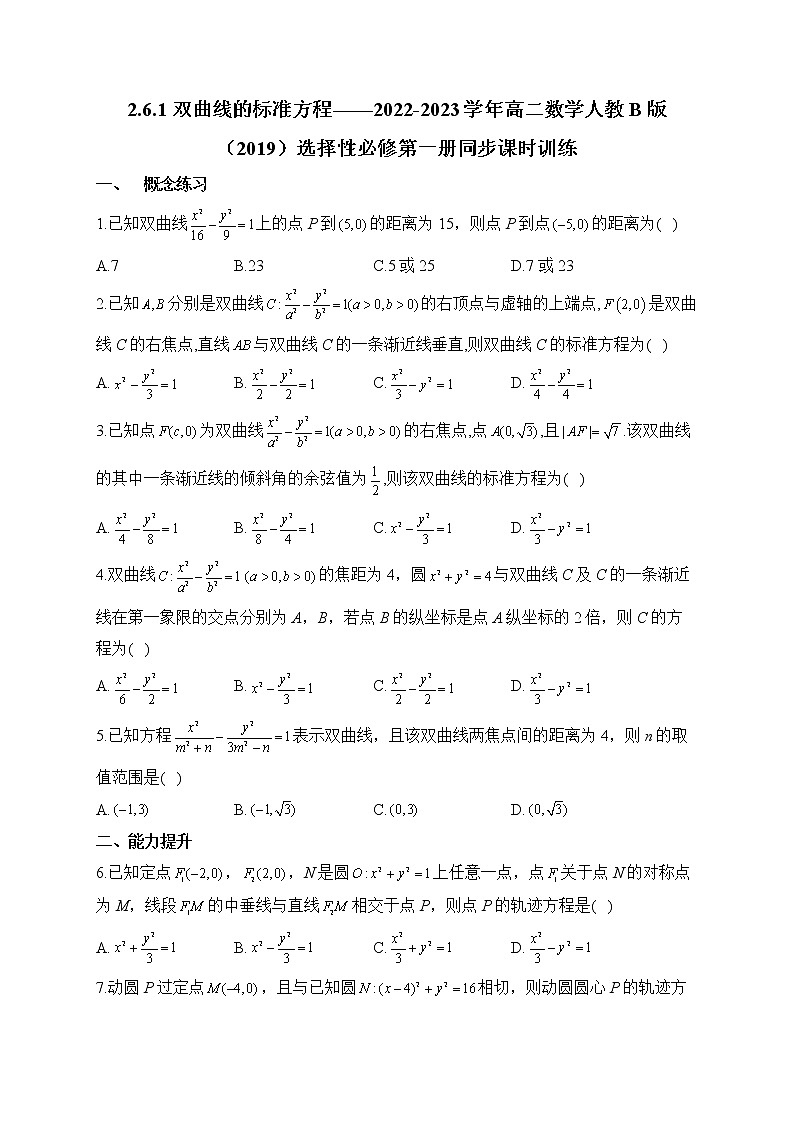 2.6.1 双曲线的标准方程——2022-2023学年高二数学人教B版
（2019）选择性必修第一册同步课时训练
一、 概念练习
1.已知双曲线 x²/16 − y²/9 = 1 上的点 P 到 (5,0) 的距离为 15，则点 P 到点 (−5,0) 的距离为( )
A.7 B.23 C.5 或 25 D.7 或 23
2.已知 A,B 分别是双曲线 C: x²/a² − y²/b² = 1(a > 0,b > 0) 的右顶点与虚轴的上端点, F(2,0) 是双曲
线 C 的右焦点,直线 AB 与双曲线 C 的一条渐近线垂直,则双曲线 C 的标准方程为( )
A. x² − y²/3 = 1 B. x²/2 − y²/2 = 1 C. x²/3 − y² = 1 D. x²/4 − y²/4 = 1
3.已知点 F(c,0) 为双曲线 x²/a² − y²/b² = 1(a > 0,b > 0) 的右焦点,点 A(0, √3) ,且 | AF |= √7 .该双曲线
的其中一条渐近线的倾斜角的余弦值为 1/2 ,则该双曲线的标准方程为( )
A. x²/4 − y²/8 = 1 B. x²/8 − y²/4 = 1 C. x² − y²/3 = 1 D. x²/3 − y² = 1
4.双曲线 C: x²/a² − y²/b² = 1 (a > 0,b > 0) 的焦距为 4，圆 x² + y² = 4 与双曲线 C 及 C 的一条渐近
线在第一象限的交点分别为 A，B，若点 B 的纵坐标是点 A 纵坐标的 2 倍，则 C 的方
程为( )
A. x²/6 − y²/2 = 1 B. x² − y²/3 = 1 C. x²/2 − y²/2 = 1 D. x²/3 − y² = 1
5.已知方程 x²/(m² + n) − y²/(3m² − n) = 1 表示双曲线，且该双曲线两焦点间的距离为 4，则 n 的取
值范围是( )
A. (−1,3) B. (−1, √3) C. (0,3) D. (0, √3)
二、能力提升
6.已知定点 F₁(−2,0)， F₂(2,0)，N 是圆 O: x² + y² = 1 上任意一点，点 F₁ 关于点 N 的对称点
为 M，线段 F₁M 的中垂线与直线 F₂M 相交于点 P，则点 P 的轨迹方程是( )
A. x² + y²/3 = 1 B. x² − y²/3 = 1 C. x²/3 + y² = 1 D. x²/3 − y² = 1
7.动圆 P 过定点 M(−4,0)，且与已知圆 N: (x − 4)² + y² = 16 相切，则动圆圆心 P 的轨迹方